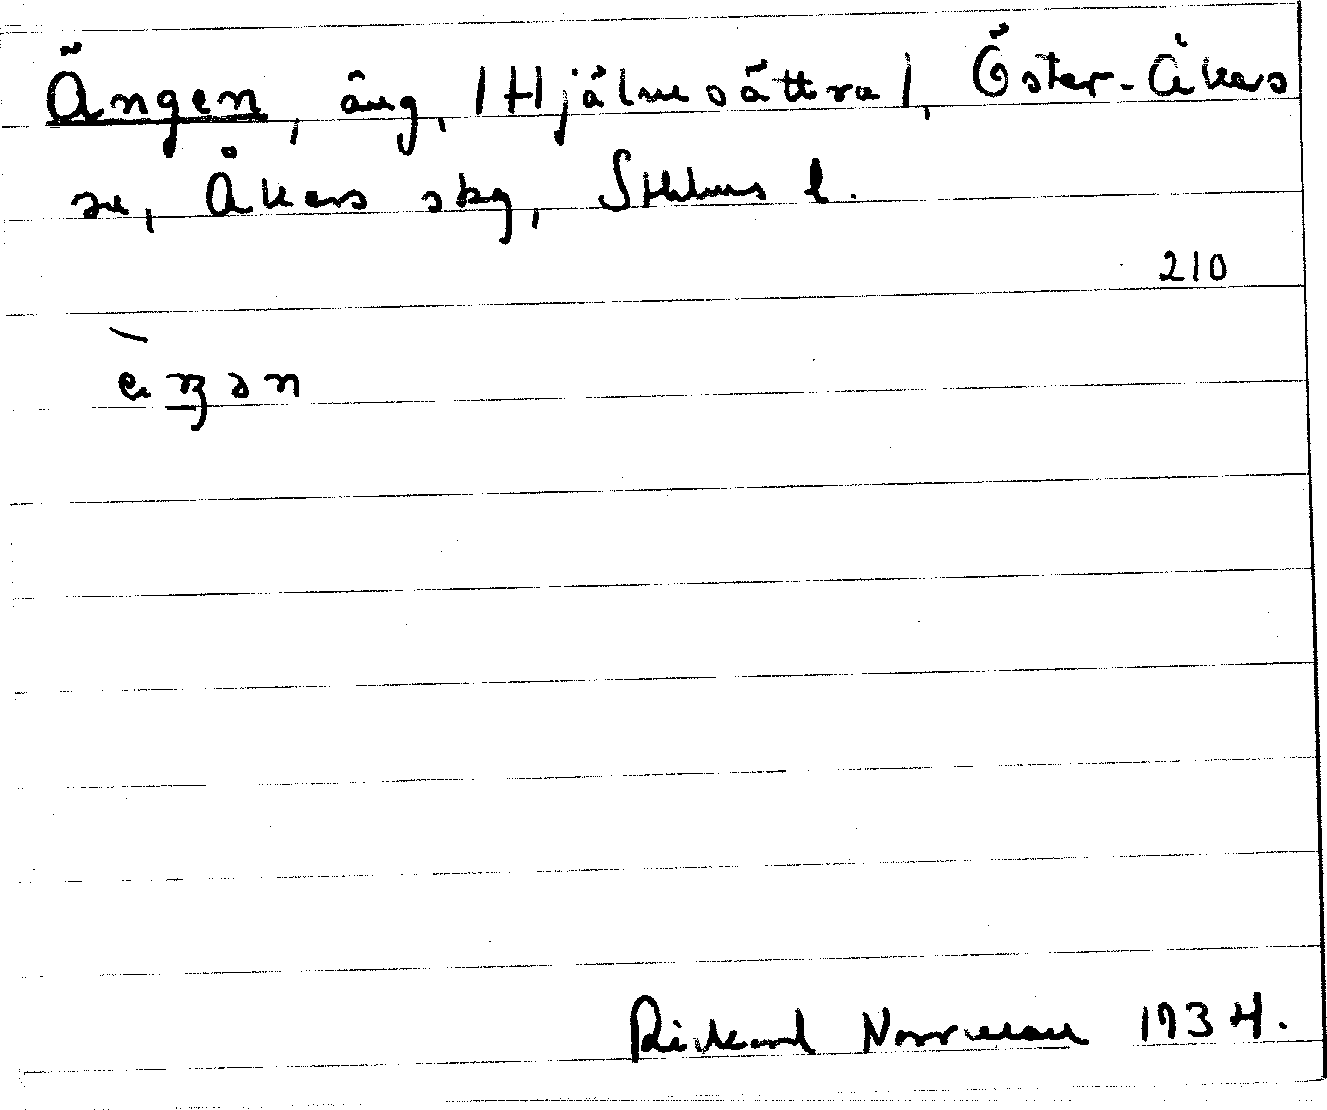 Ängen, äng, /Hjälmsättra/, Öster-Åkers
sn, Åkers skg, Sthlms l.
210
Rickard Norrman 1934.